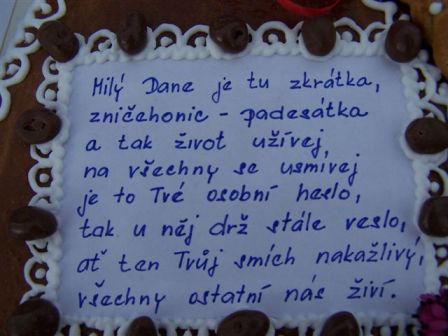 Milý Dane je tu zkrátka,
zničehonic - padesátka
a tak život užívej,
na všechny se usmívej
je to Tvé osobní heslo,
tak u něj drž stále veslo,
ať ten Tvůj smích nakažlivý,
všechny ostatní nás živí.